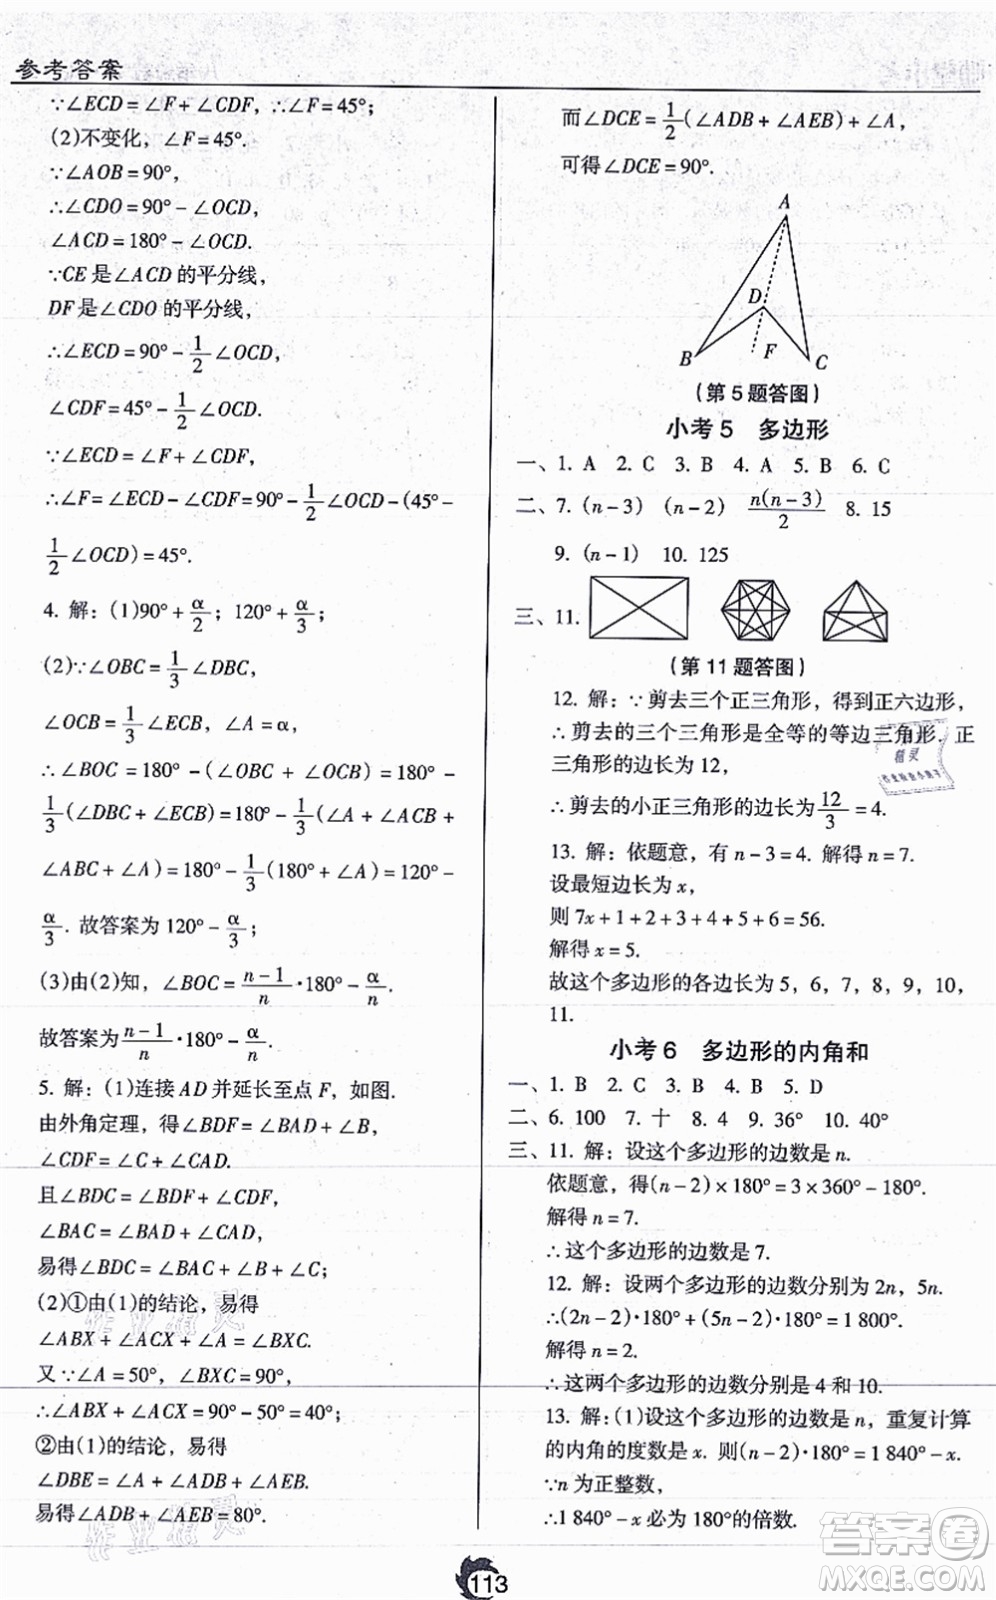 参考答案
∵∠ECD=∠F+∠CDF，∴∠F=45°；
(2)不变化，∠F=45°.
∵∠AOB=90°，
∴∠CDO=90°-∠OCD，
∠ACD=180°-∠OCD.
∵CE是∠ACD的平分线，
DF是∠CDO的平分线，
∴∠ECD=90°-1/2∠OCD，
∠CDF=45°-1/2∠OCD.
∵∠ECD=∠F+∠CDF，
∴∠F=∠ECD-∠CDF=90°-1/2∠OCD-(45°-
1/2∠OCD)=45°.
4. 解：(1)90°+α/2；120°+α/3；
(2)∵∠OBC=1/3∠DBC，
∠OCB=1/3∠ECB，∠A=α，
∴∠BOC=180°-(∠OBC+∠OCB)=180°-
1/3(∠DBC+∠ECB)=180°-1/3(∠A+∠ACB+
∠ABC+∠A)=180°-1/3(180°+∠A)=120°-
α/3. 故答案为120°-α/3；
(3)由(2)知，∠BOC=(n-1)/n·180°-α/n.
故答案为(n-1)/n·180°-α/n.
5. 解：(1)连接AD并延长至点F，如图.
由外角定理，得∠BDF=∠BAD+∠B，
∠CDF=∠C+∠CAD.
且∠BDC=∠BDF+∠CDF，
∠BAC=∠BAD+∠CAD，
易得∠BDC=∠BAC+∠B+∠C；
(2)①由(1)的结论，易得
∠ABX+∠ACX+∠A=∠BXC.
又∵∠A=50°，∠BXC=90°，
∴∠ABX+∠ACX=90°-50°=40°；
②由(1)的结论，易得
∠DBE=∠A+∠ADB+∠AEB.
易得∠ADB+∠AEB=80°.
而∠DCE=1/2(∠ADB+∠AEB)+∠A，
可得∠DCE=90°.
A
D
B
F
C
(第5题答图)
小考5 多边形
一、1. A 2. C 3. B 4. A 5. B 6. C
二、7. (n-3) (n-2) n(n-3)/2 8. 15
9. (n-1) 10. 125
三、11.
(第11题答图)
12. 解：∵剪去三个正三角形，得到正六边形，
∴剪去的三个三角形是全等的等边三角形. 正
三角形的边长为12，
∴剪去的小正三角形的边长为12/3=4.
13. 解：依题意，有n-3=4. 解得n=7.
设最短边长为x，
则7x+1+2+3+4+5+6=56.
解得x=5.
故这个多边形的各边长为5，6，7，8，9，10，
11.
小考6 多边形的内角和
一、1. B 2. C 3. B 4. B 5. D
二、6. 100 7. 十 8. 4 9. 36° 10. 40°
三、11. 解：设这个多边形的边数是n.
依题意，得(n-2)×180°=3×360°-180°.
解得n=7.
∴这个多边形的边数是7.
12. 解：设两个多边形的边数分别为2n，5n.
∴(2n-2)·180°+(5n-2)·180°=1 800°.
解得n=2.
∴这两个多边形的边数分别是4和10.
13. 解：(1)设这个多边形的边数是n，重复计算
的内角的度数是x. 则(n-2)·180°=1 840°-x.
∵n为正整数，
∴1 840°-x必为180°的倍数.
113
答案卷
MXQE.COM
作业精灵
作业精灵
精灵